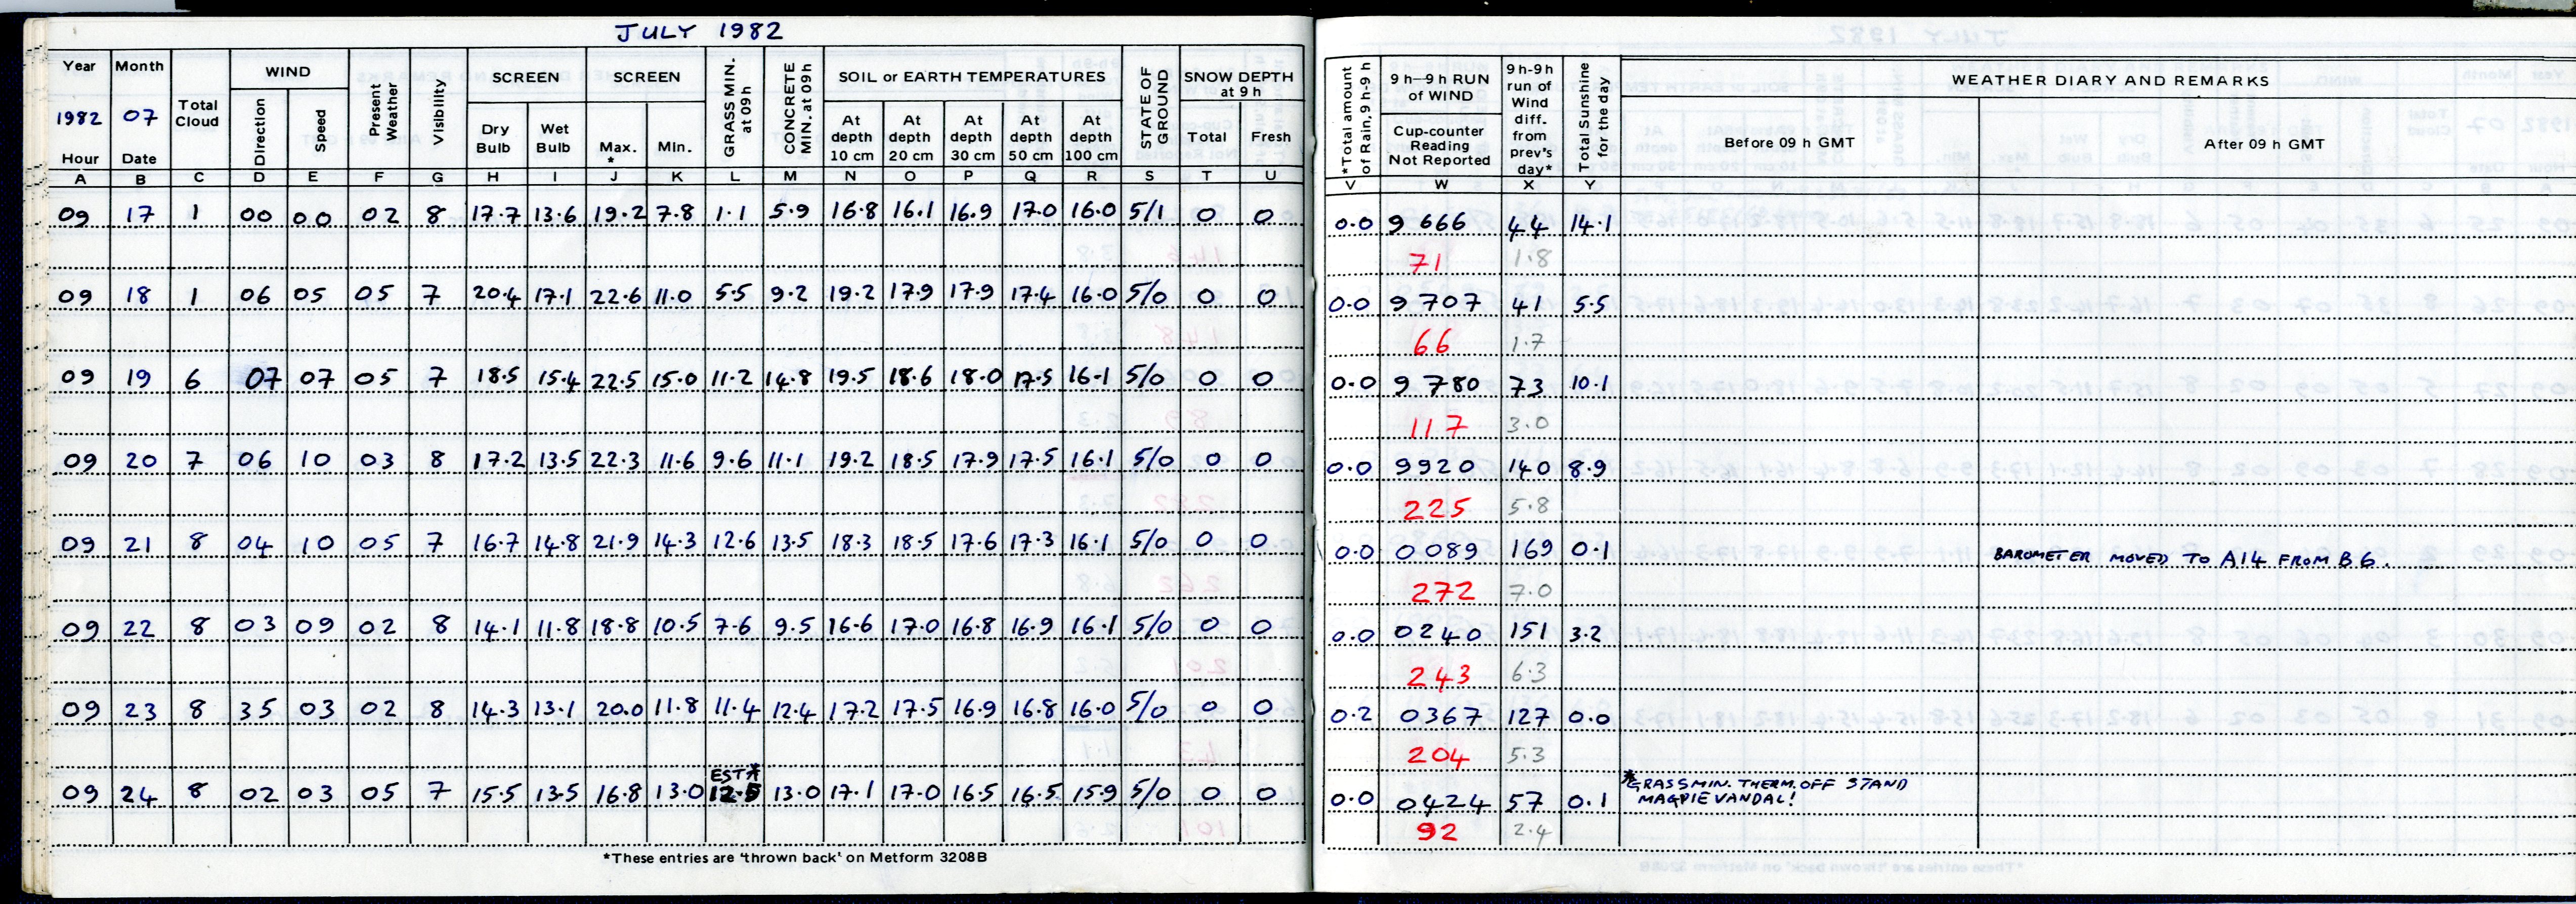 JULY 1982
Year Month WIND SCREEN SCREEN GRASS MIN. at 09h CONCRETE MIN. at 09h SOIL or EARTH TEMPERATURES STATE OF GROUND SNOW DEPTH at 9 h
1982 07 Total Cloud Direction Speed Present Weather Visibility Dry Bulb Wet Bulb Max. * Min. At depth 10 cm At depth 20 cm At depth 30 cm At depth 50 cm At depth 100 cm Total Fresh
Hour Date
A B C D E F G H I J K L M N O P Q R S T U
09 17 1 00 00 02 8 17.7 13.6 19.2 7.8 1.1 5.9 16.8 16.1 16.9 17.0 16.0 5/1 0 0
09 18 1 06 05 05 7 20.4 17.1 22.6 11.0 5.5 9.2 19.2 17.9 17.9 17.4 16.0 5/0 0 0
09 19 6 07 07 05 7 18.5 15.4 22.5 15.0 11.2 14.8 19.5 18.6 18.0 17.5 16.1 5/0 0 0
09 20 7 06 10 03 8 17.2 13.5 22.3 11.6 9.6 11.1 19.2 18.5 17.9 17.5 16.1 5/0 0 0
09 21 8 04 10 05 7 16.7 14.8 21.9 14.3 12.6 13.5 18.3 18.5 17.6 17.3 16.1 5/0 0 0
09 22 8 03 09 02 8 14.1 11.8 18.8 10.5 7.6 9.5 16.6 17.0 16.8 16.9 16.1 5/0 0 0
09 23 8 35 03 02 8 14.3 13.1 20.0 11.8 11.4 12.4 17.2 17.5 16.9 16.8 16.0 5/0 0 0
EST*
09 24 8 02 03 05 7 15.5 13.5 16.8 13.0 12.5 13.0 17.1 17.0 16.5 16.5 15.9 5/0 0 0
*These entries are 'thrown back' on Metform 3208B
*Total amount of Rain, 9 h-9 h 9 h–9 h RUN of WIND 9 h-9h run of Wind diff. from prev's day* Total Sunshine for the day WEATHER DIARY AND REMARKS
Cup-counter Reading Not Reported Before 09 h GMT After 09 h GMT
V W X Y
0.0 9 666 44 14.1
71 1.8
0.0 9 707 41 5.5
66 1.7
0.0 9 780 73 10.1
117 3.0
0.0 9920 140 8.9
225 5.8
0.0 0089 169 0.1 BAROMETER MOVED TO A14 FROM B6.
272 7.0
0.0 0240 151 3.2
243 6.3
0.2 0367 127 0.0
204 5.3
*GRASS MIN. THERM. OFF STAND
0.0 0424 57 0.1 MAGPIE VANDAL!
92 2.4